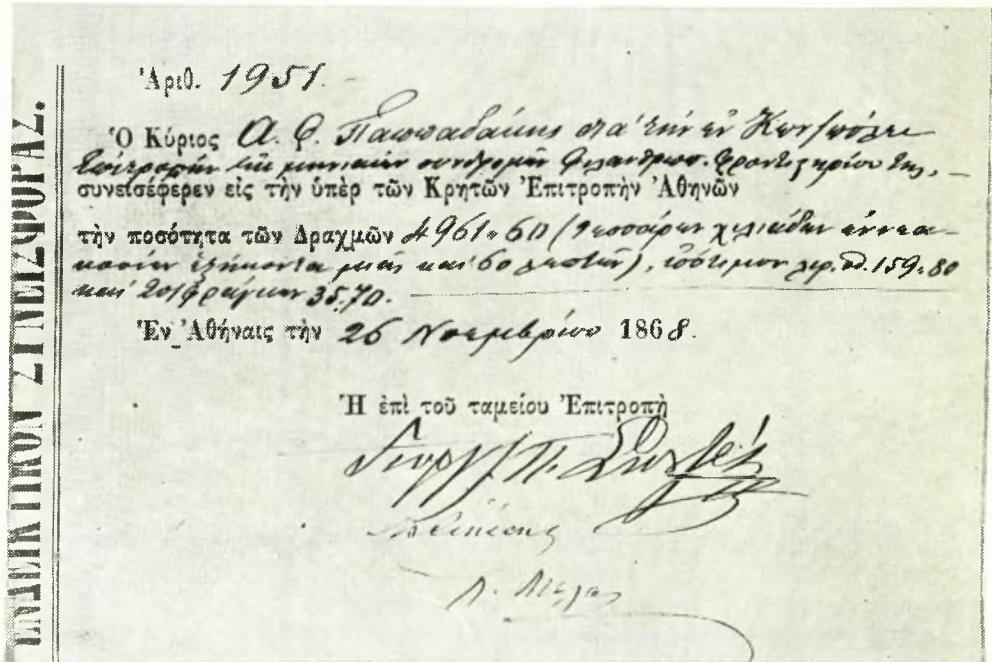 ΕΝΔΕΙΚΤΙΚΟΝ ΣΥΝΕΙΣΦΟΡΑΣ.
Ἀριθ. 1951.
Ὁ Κύριος Α. Φ. Παππαδάκης διὰ τὴν ἐν Κων/πόλει
μηνιαίαν συνδρομὴν φιλανθρωπ. φροντιστηρίου της.—
συνεισέφερεν εἰς τὴν ὑπὲρ τῶν Κρητῶν Ἐπιτροπὴν Ἀθηνῶν
τὴν ποσότητα τῶν Δραχμῶν 4961:60 (τεσσάρων χιλιάδων ἐννεα-
κοσίων ἑξήκοντα μιᾶς καὶ 60 λεπτῶν), ἰσότιμον 159:80
καὶ 20/φράγκων 35,70.
Ἐν Ἀθήναις τὴν 26 Νοεμβρίου 1868.
Ἡ ἐπὶ τοῦ ταμείου Ἐπιτροπὴ
Γεωργ. Π. Σκουζές
Λ. Μελᾶς